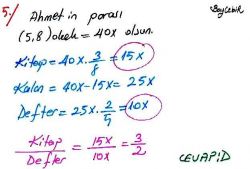 5./ Ahmet in parası
BayÇebik
(5,8)okek = 40x olsun.
Kitap = 40x · 3/8 = 15x
Kalan = 40x - 15x = 25x
Defter = 25x · 2/5 = 10x
Kitap/Defter = 15x/10x = 3/2
CEVAP:D